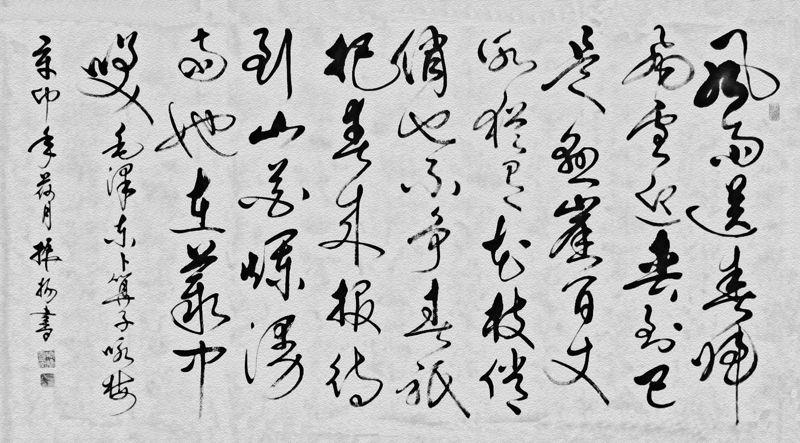 風雨送春歸
飛雪迎春到已
是懸崖百丈
冰猶有花枝俏
俏也不爭春祇
把春來報待
到山花爛漫
時她在叢中
笑 毛澤東卜算子咏梅
辛卯年荷月振書